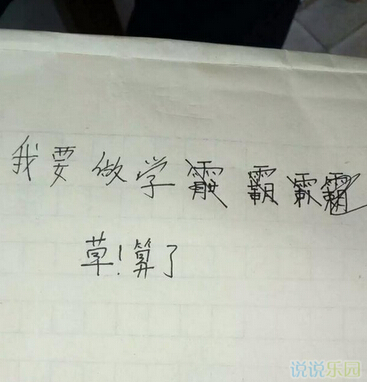 我要做学霸
草！算了
说说乐园